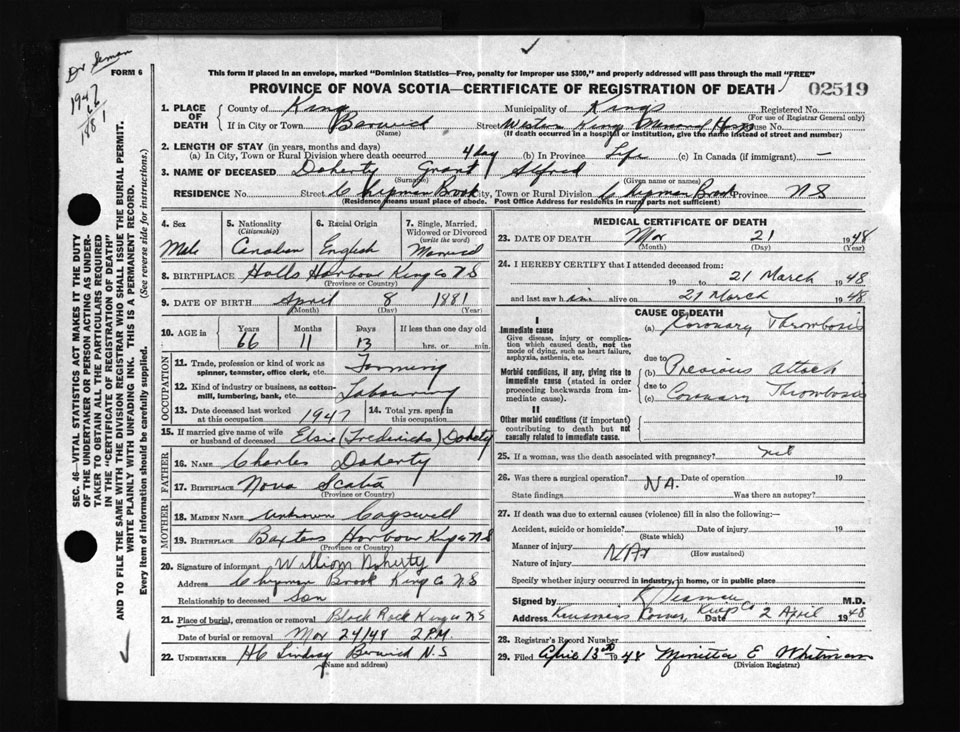 Dr Seman
1947
26
1881
FORM 6
This form if placed in an envelope, marked "Dominion Statistics—Free, penalty for improper use $300," and properly addressed will pass through the mail "FREE"
PROVINCE OF NOVA SCOTIA—CERTIFICATE OF REGISTRATION OF DEATH
02519
1. PLACE OF DEATH
County of Kings Municipality of Kings Registered No.
(For use of Registrar General only)
If in City or Town Berwick Street Western King Memorial Hosp House No.
(Name) (If death occurred in a hospital or institution, give the name instead of street and number)
2. LENGTH OF STAY (in years, months and days)
(a) In City, Town or Rural Division where death occurred 4 day (b) In Province Life (c) In Canada (if immigrant) —
3. NAME OF DECEASED Doherty Grant Alfred
(Surname) (Given name or names)
RESIDENCE No. Street Chipman Brook City, Town or Rural Division Chipman Brook Province N S
(Residence means usual place of abode. Post Office Address for residents in rural parts not sufficient)
4. Sex 5. Nationality (Citizenship) 6. Racial Origin 7. Single, Married, Widowed or Divorced (write the word)
Male Canadian English Married
8. BIRTHPLACE Halls Harbour King Co N S
(Province or Country)
9. DATE OF BIRTH April 8 1881
(Month) (Day) (Year)
10. AGE in Years Months Days If less than one day old
66 11 13 hrs. or min.
OCCUPATION
11. Trade, profession or kind of work as spinner, teamster, office clerk, etc. Farming
12. Kind of industry or business, as cotton-mill, lumbering, bank, etc. Labouring
13. Date deceased last worked at this occupation 1947 14. Total yrs. spent in this occupation
15. If married give name of wife or husband of deceased Elsie (Fredericks) Doherty
FATHER
16. NAME Charles Doherty
17. BIRTHPLACE Nova Scotia
(Province or Country)
MOTHER
18. MAIDEN NAME Unknown Cogswell
19. BIRTHPLACE Baxters Harbour King Co N S
(Province or Country)
20. Signature of informant William Doherty
Address Chipman Brook King Co N. S
Relationship to deceased Son
21. Place of burial, cremation or removal Black Rock King Co N S
Date of burial or removal Mar 24/48 2 P.M.
22. UNDERTAKER H C Lindsay Berwick N. S
(Name and address)
MEDICAL CERTIFICATE OF DEATH
23. DATE OF DEATH Mar 21 1948
(Month) (Day) (Year)
24. I HEREBY CERTIFY that I attended deceased from:
19 to 21 March 1948
and last saw him alive on 21 March 1948
CAUSE OF DEATH
I
Immediate cause
Give disease, injury or complication which caused death, not the mode of dying, such as heart failure, asphyxia, asthenia, etc.
(a) Coronary Thrombosis
due to
Morbid conditions, if any, giving rise to immediate cause (stated in order proceeding backwards from immediate cause).
(b) Previous attack
due to
(c) Coronary Thrombosis
II
Other morbid conditions (if important) contributing to death but not causally related to immediate cause.
25. If a woman, was the death associated with pregnancy? nil
26. Was there a surgical operation? N.A. Date of operation 19
State findings Was there an autopsy?
27. If death was due to external causes (violence) fill in also the following:—
Accident, suicide or homicide? Date of injury 19
(State which)
Manner of injury N/A
(How sustained)
Nature of injury
Specify whether injury occurred in industry, in home, or in public place
Signed by M.D.
Address Corner, Kings Co Date 2 April 1948
28. Registrar's Record Number
29. Filed April 13th 1948 E. Whitman
(Division Registrar)
SEC. 46—VITAL STATISTICS ACT MAKES IT THE DUTY
OF THE UNDERTAKER OR PERSON ACTING AS UNDER-
TAKER TO OBTAIN ALL THE PARTICULARS REQUIRED
IN THE "CERTIFICATE OF REGISTRATION OF DEATH"
AND TO FILE THE SAME WITH THE DIVISION REGISTRAR WHO SHALL ISSUE THE BURIAL PERMIT.
WRITE PLAINLY WITH UNFADING INK. THIS IS A PERMANENT RECORD.
Every item of information should be carefully supplied. (See reverse side for instructions.)